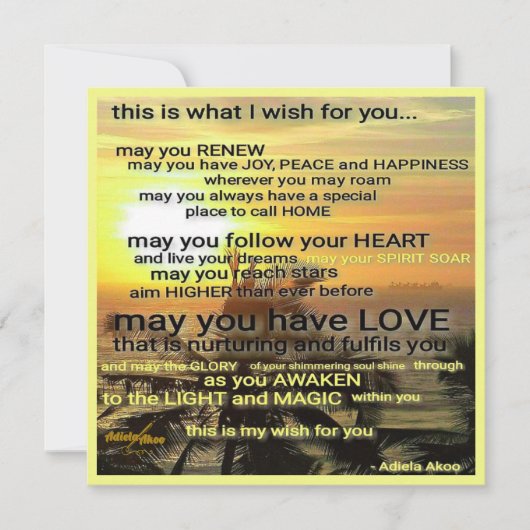 this is what I wish for you...
may you RENEW
may you have JOY, PEACE and HAPPINESS
wherever you may roam
may you always have a special
place to call HOME
may you follow your HEART
and live your dreams may your SPIRIT SOAR
may you reach stars
aim HIGHER than ever before
may you have LOVE
that is nurturing and fulfils you
and may the GLORY of your shimmering soul shine through
as you AWAKEN
to the LIGHT and MAGIC within you
this is my wish for you
Adiela Akoo
- Adiela Akoo